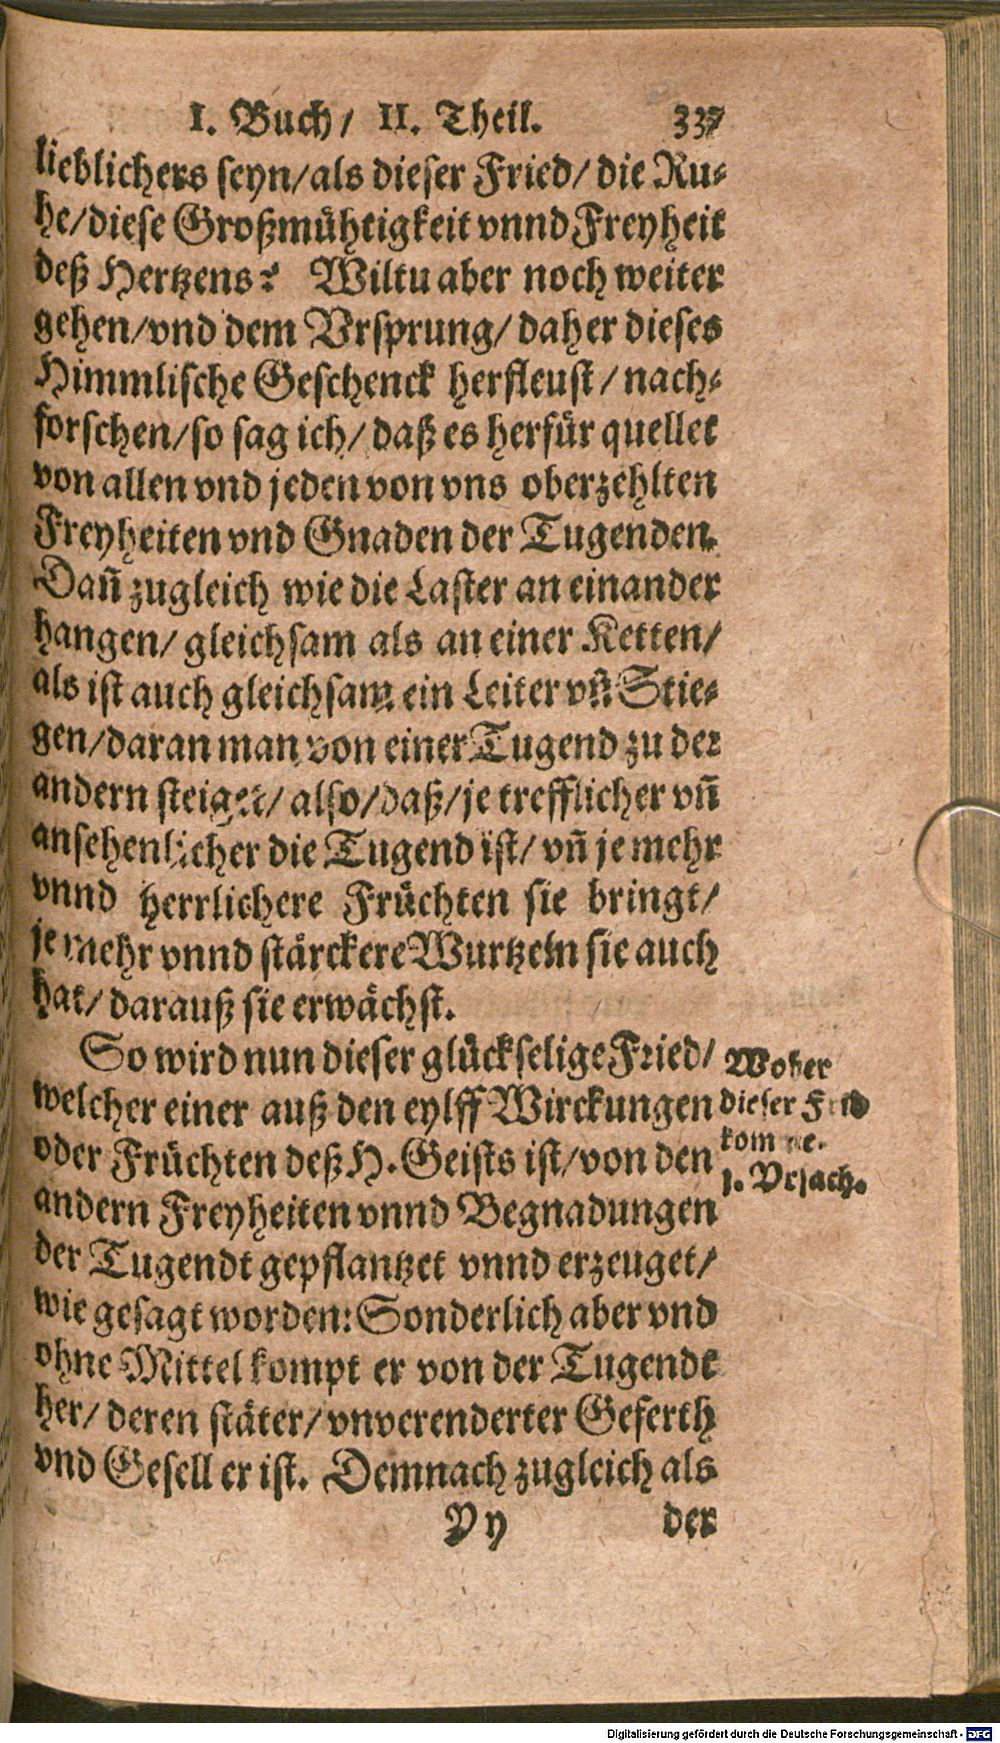 I. Buch/ II. Theil. 337
lieblichers seyn/als dieser Fried/ die Ru⸗
he/diese Großmühtigkeit vnnd Freyheit
deß Hertzens? Wiltu aber noch weiter
gehen/vnd dem Vrsprung/ daher dieses
Himmlische Geschenck herfleust/ nach⸗
forschen/so sag ich/ daß es herfür quellet
von allen vnd jeden von vns oberzehlten
Freyheiten vnd Gnaden der Tugenden.
Dañ zugleich wie die Laster an einander
hangen/ gleichsam als an einer Ketten/
als ist auch gleichsam ein Leiter vñ Stie⸗
gen/daran man von einer Tugend zu der
andern steiget/ also/daß/je trefflicher vñ
ansehenlicher die Tugend ist/ vñ je mehr
vnnd herrlichere Früchten sie bringt/
je mehr vnnd stärckere Wurtzeln sie auch
hat/ darauß sie erwächst.
So wird nun dieser glückselige Fried/
welcher einer auß den eylff Wirckungen
oder Früchten deß H. Geists ist/von den
andern Freyheiten vnnd Begnadungen
der Tugendt gepflantzet vnnd erzeuget/
wie gesagt worden: Sonderlich aber vnd
ohne Mittel kompt er von der Tugendt
her/ deren stäter/ vnverenderter Geferth
vnd Gesell er ist. Demnach zugleich als
Yy der
Woher
dieser Fried
komme.
1. Vrsach.
Digitalisierung gefördert durch die Deutsche Forschungsgemeinschaft - DFG